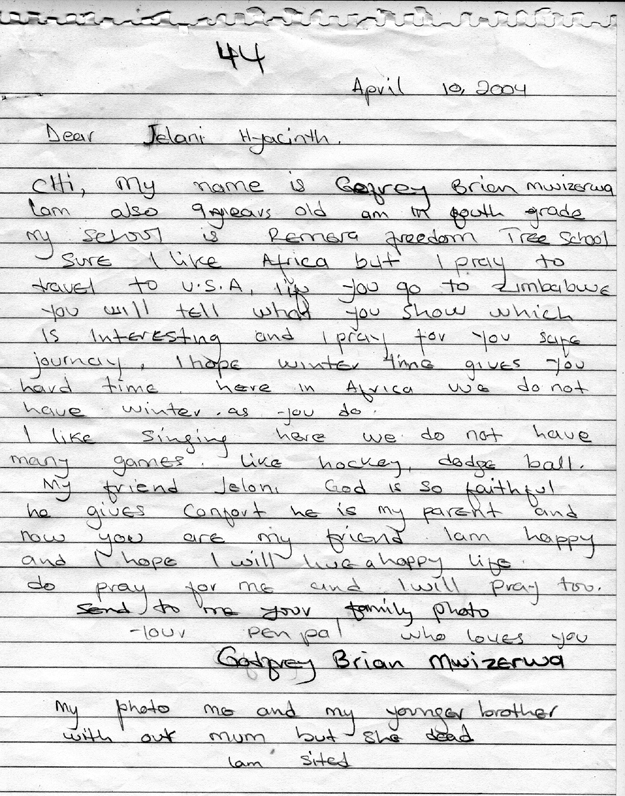 44
April 10, 2004
Dear Jelani Hyacinth.
Hi, My name is Godfrey Brian Mwizerwa
Iam also 9years old am in fouth grade
my school is Remera freedom Tree School
Sure I like Africa but I pray to
travel to U.S.A, if you go to Zimbabwe
you will tell what you show which
Is Interesting and I pray for you safe
journey, I hope winter time gives you
hard time. here in Africa we do not
have winter. as you do.
I like Singing here we do not have
many games. Like hockey, dodge ball.
My friend Jelani God is so faithful
he gives Confort he is my parent and
now you are my friend. Iam happy
and I hope I will live a happy life.
do pray for me and I will pray too.
send to me your family photo
your pen pal who loves you
Godfrey Brian Mwizerwa
My photo me and my younger brother
with our mum but she dead
Iam sited